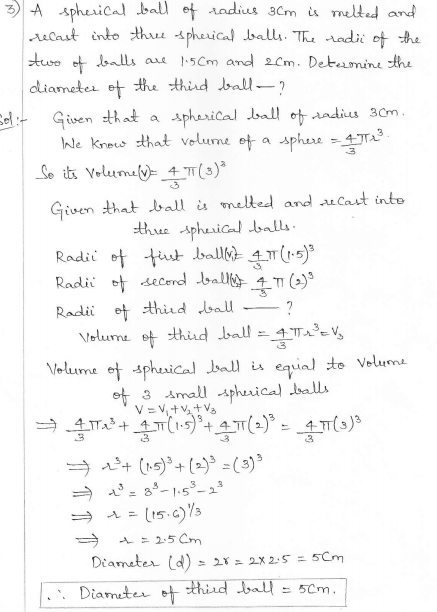 3) A spherical ball of radius 3Cm is melted and
recast into three spherical balls. The radii of the
two of balls are 1.5Cm and 2Cm. Determine the
diameter of the third ball — ?
Sol:- Given that a spherical ball of radius 3Cm.
We Know that volume of a sphere = 4/3 πr³.
So its Volume(V) = 4/3 π(3)³
Given that ball is melted and recast into
three spherical balls.
Radii of first ball(V₁) = 4/3 π(1.5)³
Radii of second ball(V₂) = 4/3 π(2)³
Radii of third ball — ?
Volume of third ball = 4/3 πr³ = V₃
Volume of spherical ball is equal to Volume
of 3 small spherical balls
V = V₁ + V₂ + V₃
⇒ 4/3 πr³ + 4/3 π(1.5)³ + 4/3 π(2)³ = 4/3 π(3)³
⇒ r³ + (1.5)³ + (2)³ = (3)³
⇒ r³ = 3³ - 1.5³ - 2³
⇒ r = (15.6)^1/3
⇒ r = 2.5 Cm
Diameter (d) = 2r = 2×2.5 = 5Cm
∴ Diameter of third ball = 5Cm.